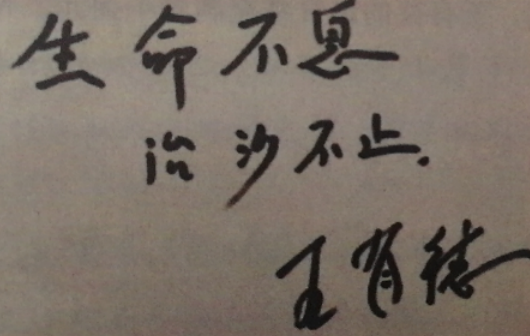 生命不息
治沙不止.
王有德